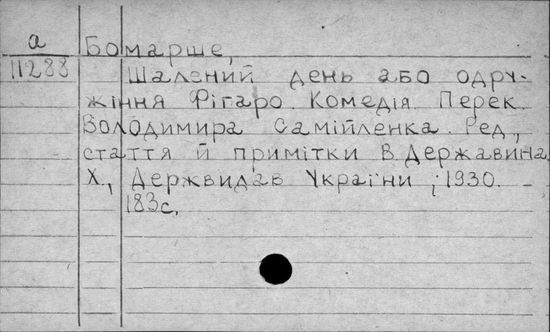 а
11288
Бомарше,
Шалений день або одру-
жіння Фігаро. Комедія. Перек.
Володимира Самійленка. Ред.,
стаття й примітки В. Державина
Х., Держвидав України, 1930.
183с.